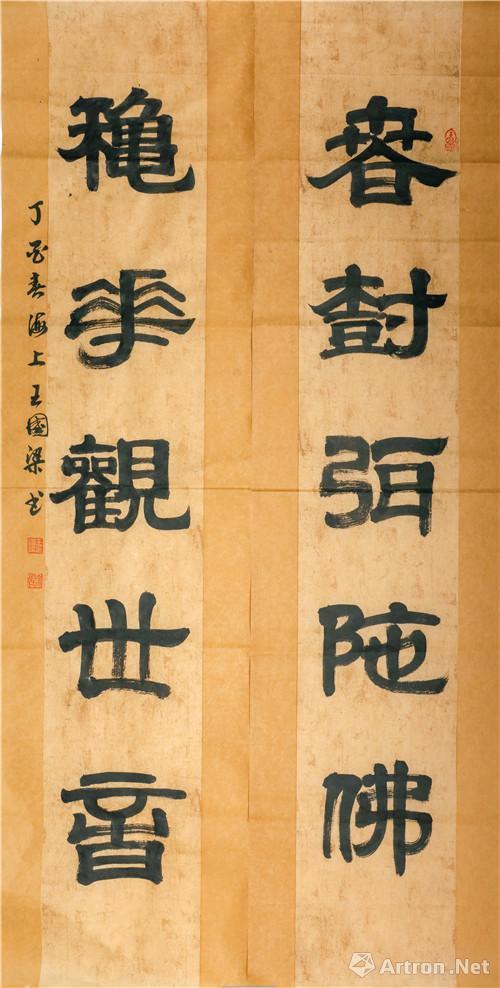 春樹彌陀佛
穐華觀世音
丁酉春海上王國梁书
Artron.Net